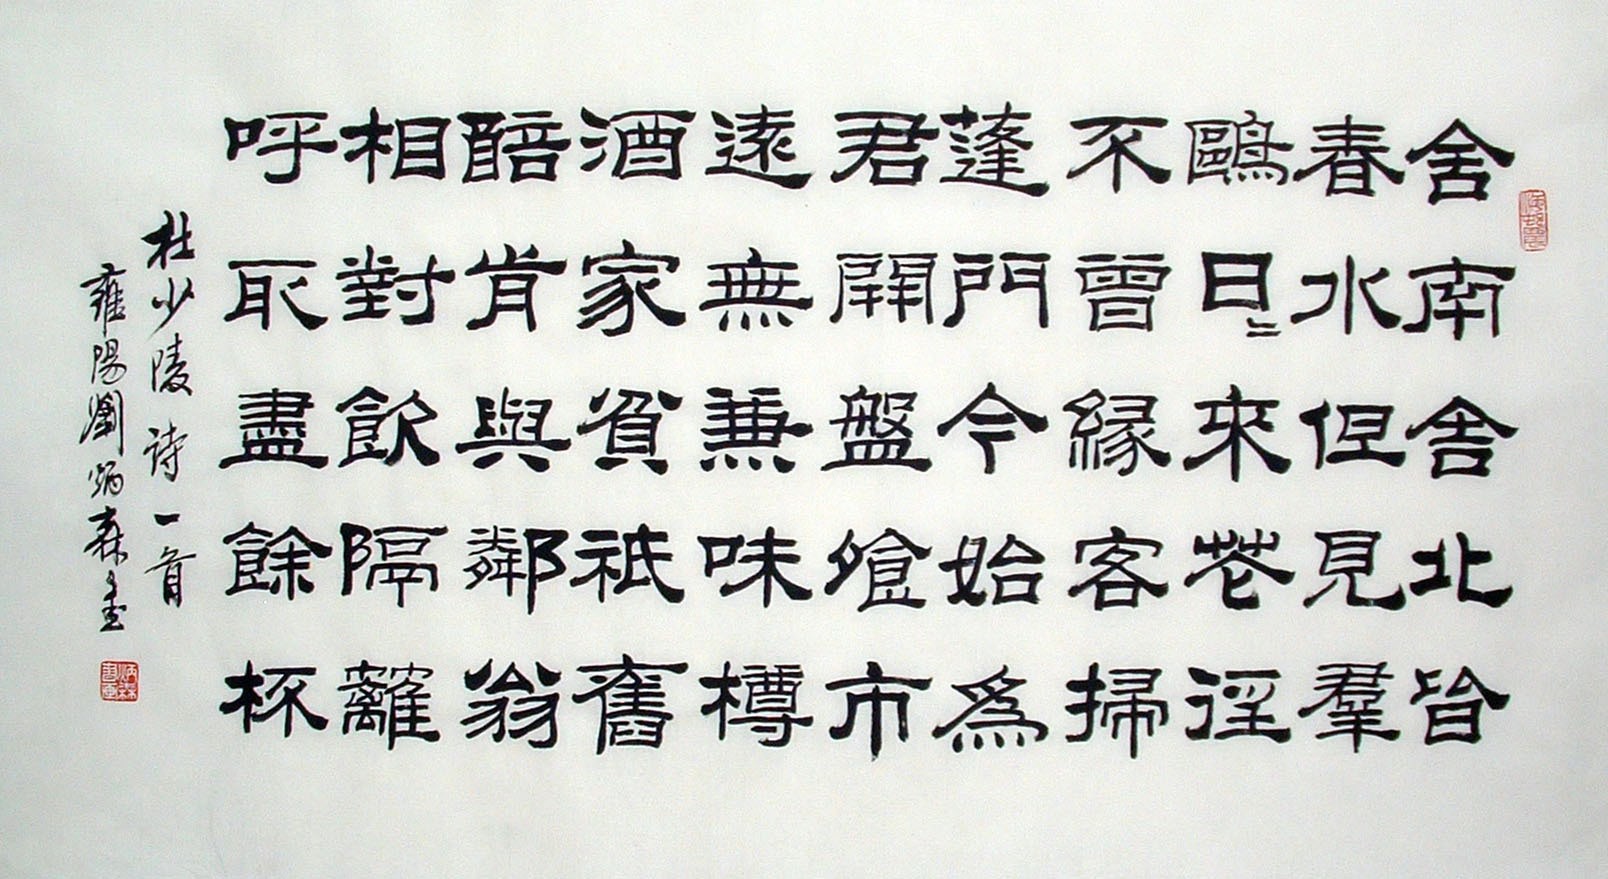 舍南舍北皆
春水但見羣
鷗日〻來花徑
不曾緣客掃
蓬門今始爲
君開盤飧市
遠無兼味樽
酒家貧祇舊
醅肯與鄰翁
相對飲隔籬
呼取盡餘杯
杜少陵詩一首
雍陽劉炳森書
炳森書畫